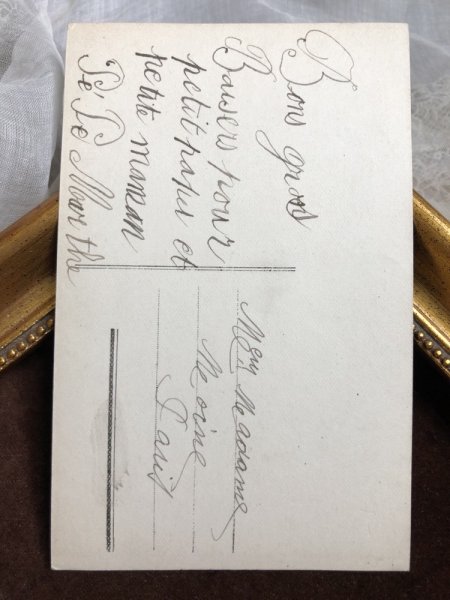 Bons gros
Baisers pour
petit papa et
petite maman
Pé Pé Marthe
Madame
Moine
Paris